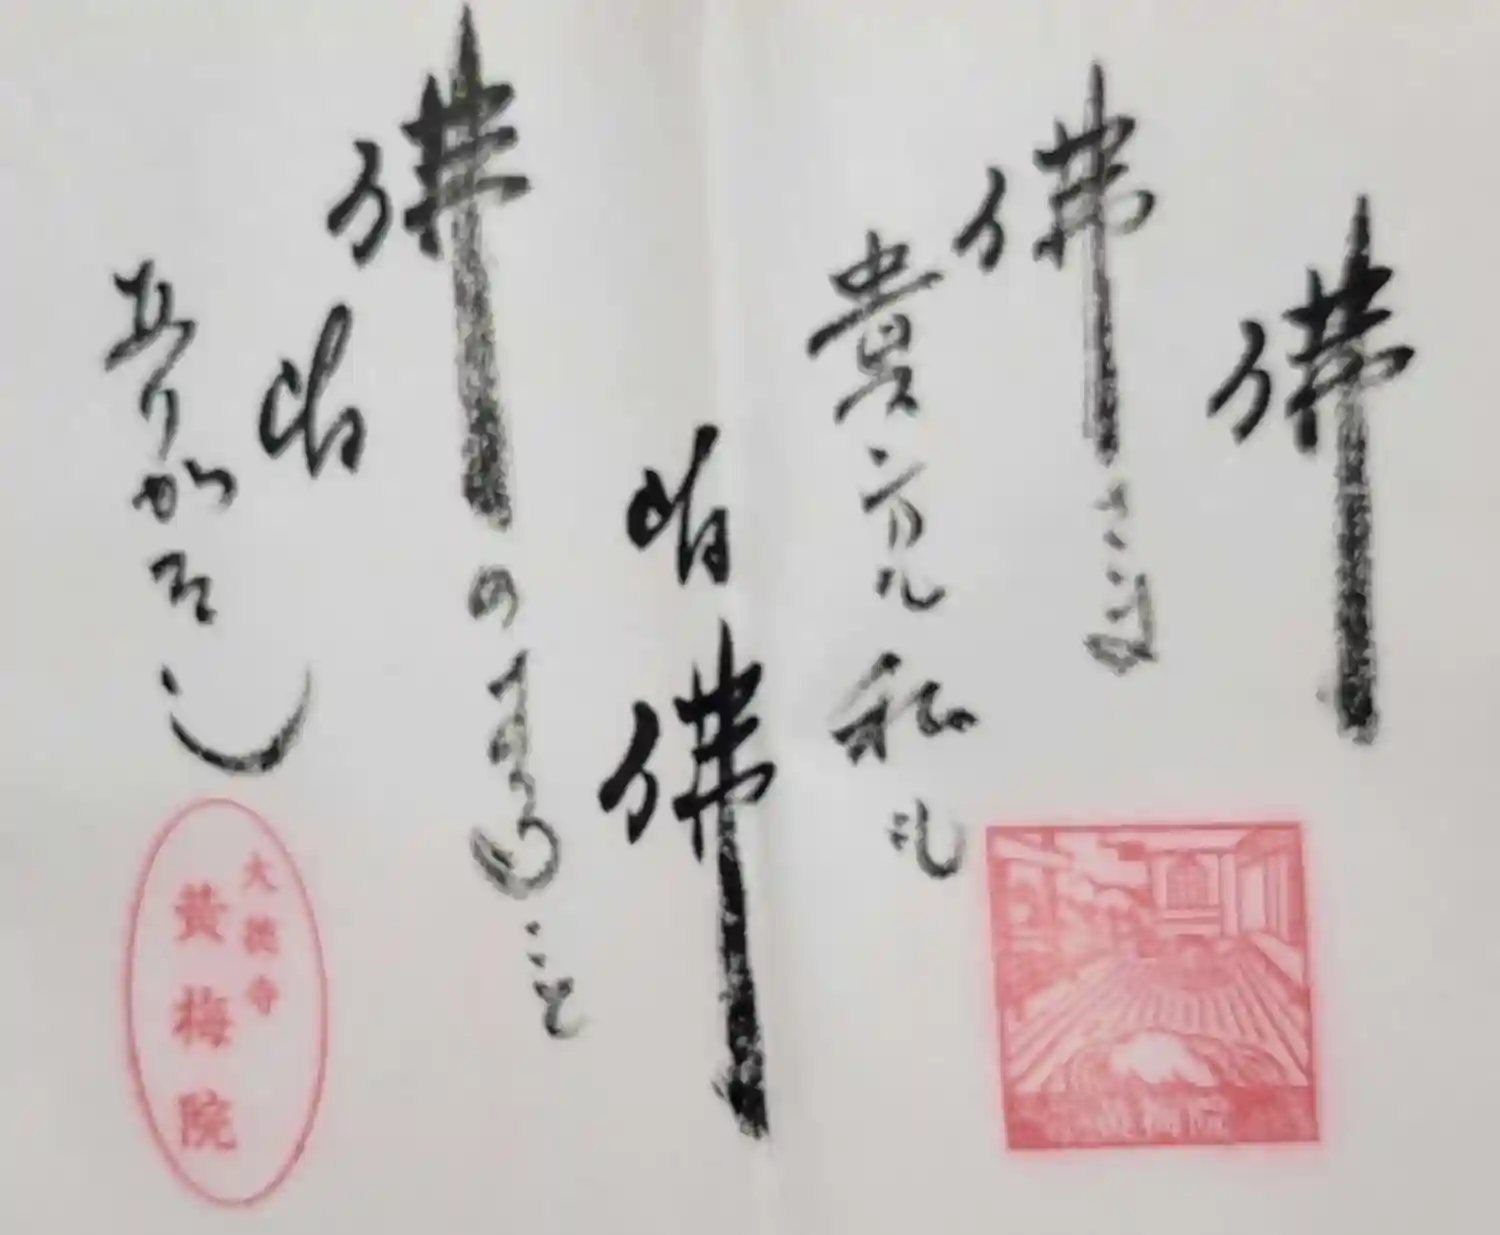 佛
佛さま
貴方も私も
皆佛
佛のすること
皆
ありがたし
大徳寺
黄梅院
黄梅院